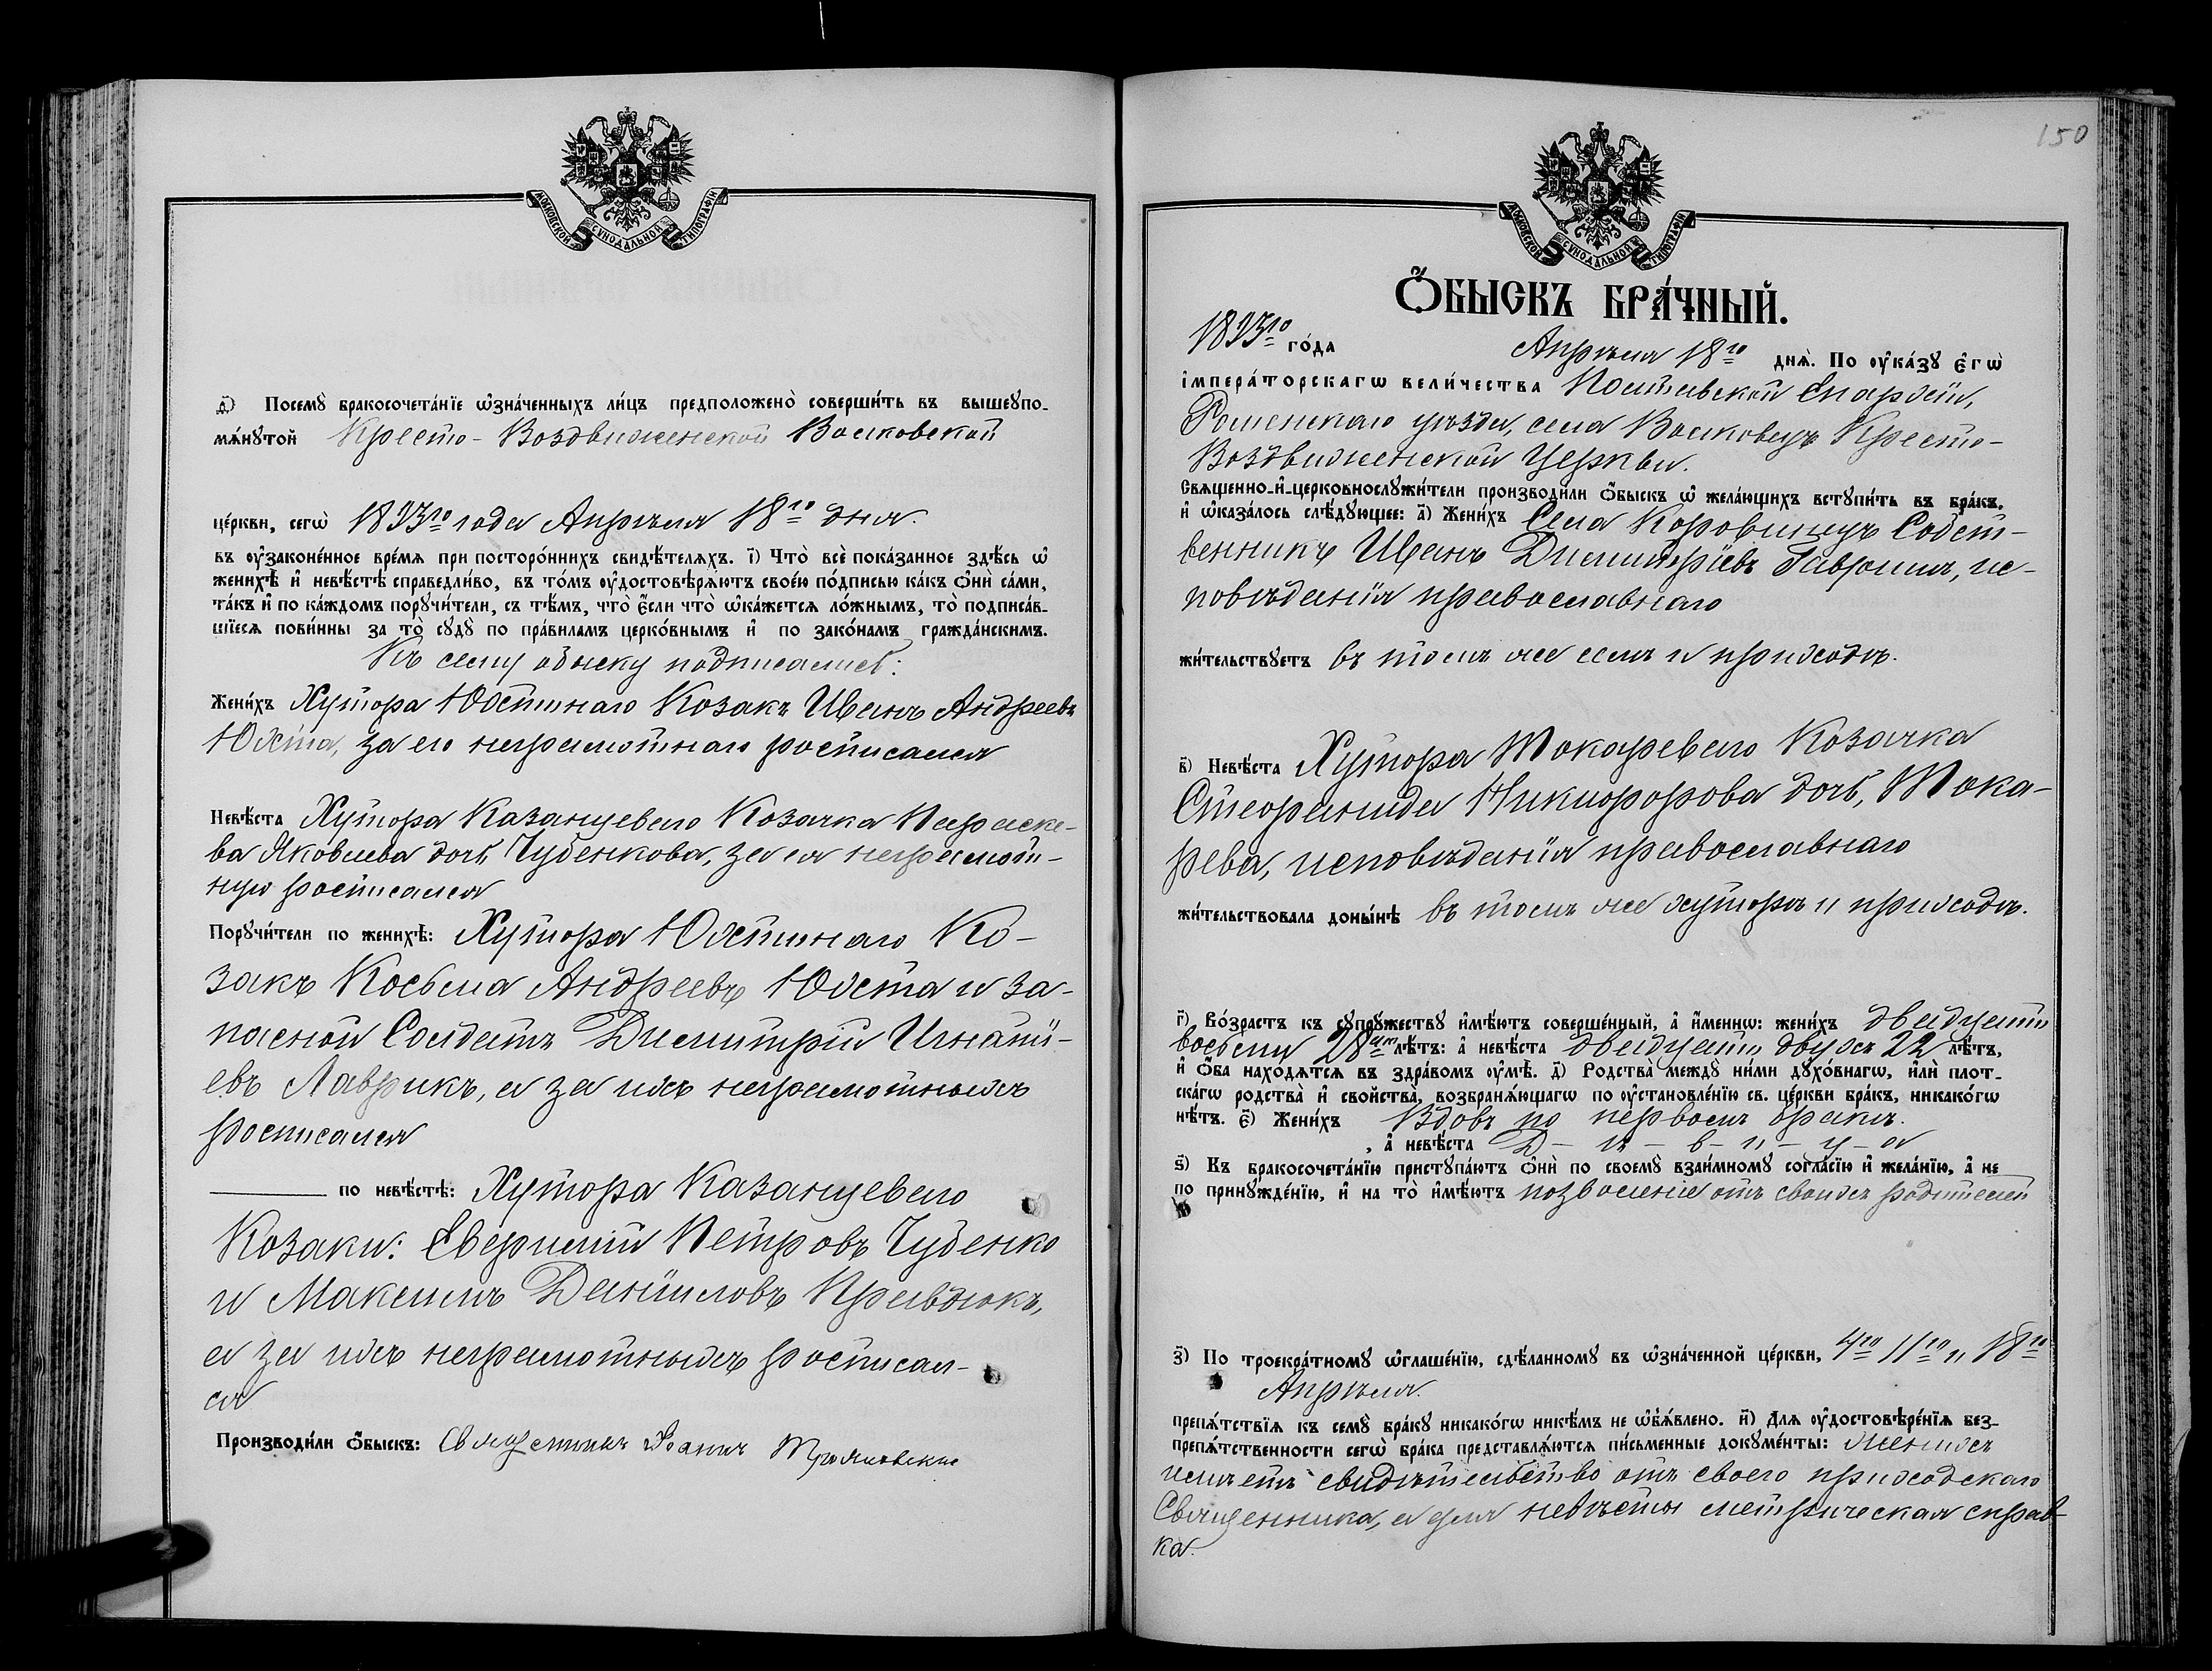 МОСКОВСКОЙ СѴНОДАЛЬНОЙ ТИПОГРАФІИ
д҃) Посемꙋ̀ бракосочета́нїе ѡ҆зна́ченныхъ ли́цъ предположено̀ соверши́ть въ вышеꙋпо-
мѧ́нꙋтой Кресто-Воздвиженской Волковской
це́ркви, сегѡ̀ 1893го года Апрѣля 18го дня.
въ ᲂу҆законе́нное вре́мѧ при посторо́ннихъ свидѣ́телѧхъ. і҃) Что̀ всѐ пока́занное здѣ́сь ѡ҆
женихѣ̀ и҆ невѣ́стѣ справедли́во, въ то́мъ ᲂу҆достовѣрѧ́ютъ свое́ю по́дписью ка́къ ѻ҆нѝ са́ми,
та́къ и҆ по ка́ждомъ порꙋчи́тели, съ тѣ́мъ, что̀ є҆́сли что̀ ѡ҆ка́жетсѧ ло́жнымъ, то̀ подписа́в-
шїесѧ пови́нны за то̀ сꙋдꙋ̀ по пра́виламъ церко́внымъ и҆ по зако́намъ гражда́нскимъ.
Къ сему обыску подписались:
Жени́хъ Хутора Юхтинаго Козакъ Иванъ Андреевъ
Юхта, за его неграмотнаго росписался
Невѣ́ста Хутора Казанцеваго Козачка Параске-
ва Яковлева дочь Чубенкова, за ея неграмот-
ную росписался
Порꙋчи́тели по женихѣ̀: Хутора Юхтинаго Ко-
закъ Косьма Андреевъ Юхта и за-
пасной Солдатъ Димитрій Игнатi-
евъ Лаврикъ, а за ихъ неграмотныхъ
росписался
по невѣ́стѣ: Хутора Казанцеваго
Козаки: Евфимій Петровъ Чубенко
и Максимъ Даніиловъ Правдюкъ,
а за ихъ неграмотныхъ росписал-
ся
Производи́ли ѻ҆́быскъ: Священникъ Іоаннъ
150
МОСКОВСКОЙ СѴНОДАЛЬНОЙ ТИПОГРАФІИ
Ѻ҆́БЫСКЪ БРА́ЧНЫЙ.
1893го го́да Апрѣля 18го днѧ̀. По ᲂу҆ка́зꙋ є҆гѡ̀
і҆мпера́торскагѡ вели́чества Полтавской Епархіи,
Роменскаго уѣзда, села Волковецъ Кресто-
Воздвиженской Церкви.
Свѧще́нно-и҆-церковнослꙋжи́тели производи́ли ѻ҆́быскъ ѡ҆ жела́ющихъ встꙋпи́ть въ бра́къ,
и҆ ѡ҆каза́лось слѣ́дꙋющее: а҃) Жени́хъ Села Коровинецъ Собст-
венникъ Иванъ Димитріевъ Гавриш, ис-
повѣданія православнаго
жи́тельствꙋетъ въ томъ же селѣ и приходѣ.
в҃) Невѣ́ста Хутора Токареваго Козачка
Стефанида Никифорова дочь, Тока-
рева, исповѣданія православнаго
жи́тельствовала доны́нѣ въ томъ же хуторѣ и приходѣ.
г҃) Во́зрастъ къ сꙋпрꙋ́жествꙋ и҆мѣ́ютъ соверше́нный, а҆ и҆́меннѡ: жени́хъ двадцати
восьми 28ми лѣ́тъ: а҆ невѣ́ста двадцати двухъ 22 лѣ́тъ,
и҆ ѻ҆́ба нахо́дѧтсѧ въ здра́вомъ ᲂу҆мѣ̀. д҃) Родства̀ междꙋ̀ ни́ми дꙋхо́внагѡ, и҆лѝ плот-
ска́гѡ родства̀ и҆ сво́йства̀, возбранѧ́ющагѡ по ᲂу҆становле́нїю св. це́ркви бра́къ, никако́гѡ
нѣ́тъ. є҃) Жени́хъ Вдовъ по первомъ бракѣ.
, а҆ невѣ́ста Д – ѣ – в – и – ц – а
ѕ҃) Къ бракосочета́нїю пристꙋпа́ютъ ѻ҆нѝ по своемꙋ̀ взаи́мномꙋ согла́сїю и҆ жела́нїю, а҆ не
по принꙋжде́нїю, и҆ на то̀ и҆мѣ́ютъ позволеніе отъ своихъ родителей
з҃) По троекра́тномꙋ ѡ҆глаше́нїю, сдѣ́ланномꙋ въ ѡ҆зна́ченной це́ркви, 4го 11го и 18го
Апрѣля.
препѧ́тствїѧ къ семꙋ̀ бра́кꙋ никако́гѡ никѣ́мъ не ѡ҆б̾ѧ́влено. и҃) Длѧ ᲂу҆достовѣре́нїѧ без-
препѧ́тственности сегѡ̀ бра́ка представлѧ́ютсѧ пи́сьменные докꙋме́нты: женихъ
имѣетъ свидѣтельство отъ своего приходскаго
Священника, а для невѣсты метрическая справ-
ка.